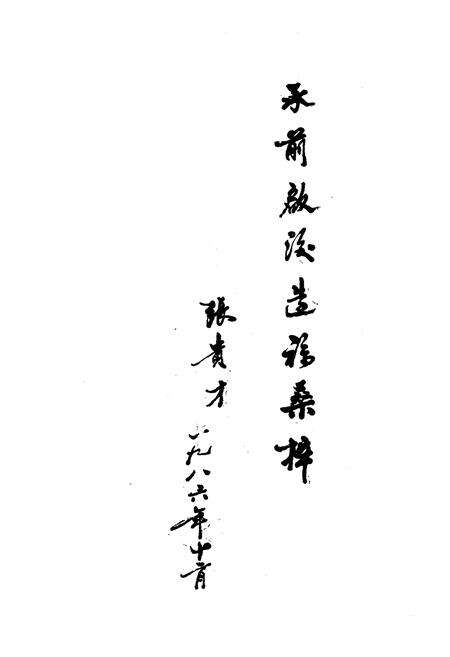 承前啟後造福桑梓
張貴才
一九八六年十一月